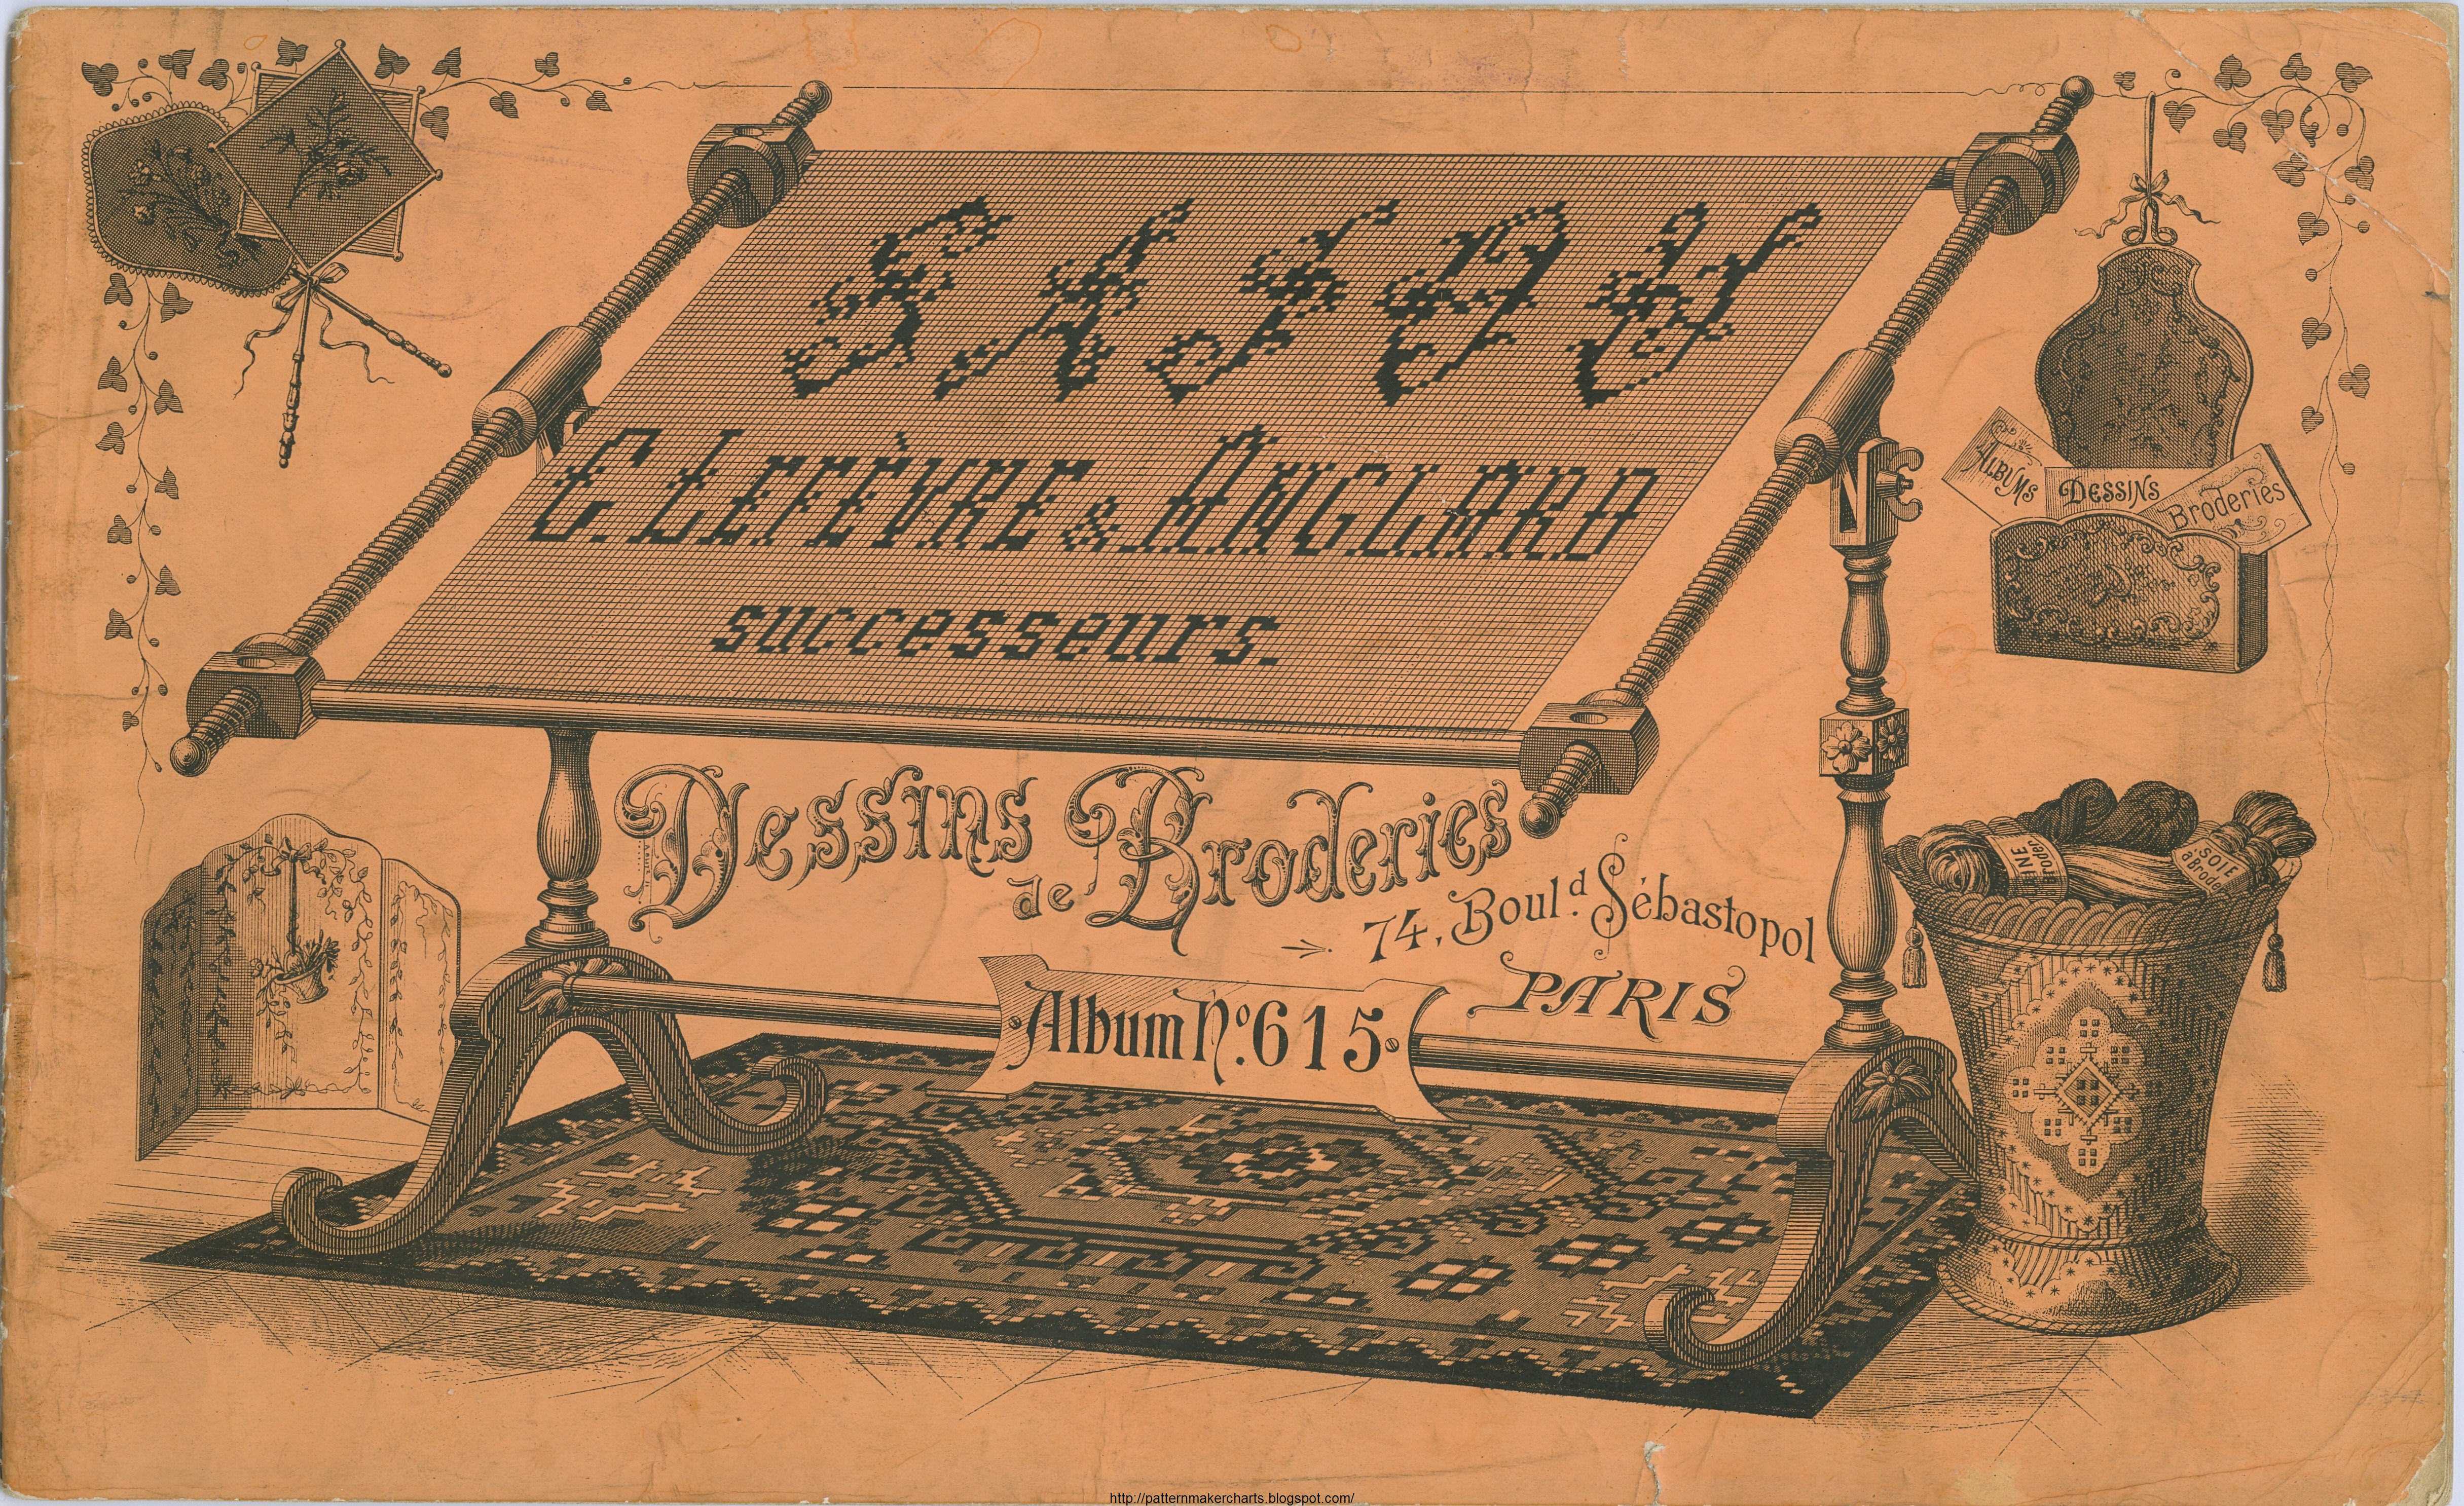 SAJOU
C. LEFÈVRE & ANGLARD
successeurs.
ALBUMS
DESSINS
Broderies
Dessins
de Broderies
74, Boul.d Sébastopol
PARIS
Album No. 615
SOIE
http://patternmakercharts.blogspot.com/